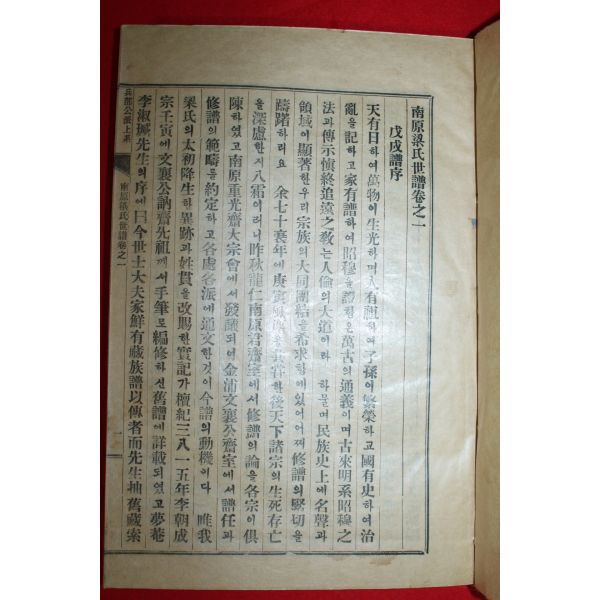 南原梁氏世譜卷之一
戊戌譜序
天有日하여萬物이生光하며人有祖하여子孫이繁榮하고國有史하여治
亂을記하고家有譜하여昭穆을譜함은萬古의通義이며古來明系昭穆之
法과傳示慎終追遠之敎는人倫의大道이라 하물며民族史上에名聲과
領域이顯著한우리宗族의大同團結을希求함에있어어찌修譜의緊切을
躊躇하리요 余七十衰年에庚寅 한後天下諸宗의生死存亡
을深慮한지八霜이러니昨秋龍仁南原君齋室에서修譜의論을各宗이俱
陳하였고南原重光齋大宗會에서發議되여金浦文襄公齋室에서譜任과
修譜의範疇를約定하고各處各派에通文한것이今譜의動機이다 唯我
梁氏의太初降生한異跡과姓貫을改賜한實記가檀紀三八一五年李朝成
宗壬寅에文襄公訥齋先祖께서手筆로編修하신舊譜에詳載되였고夢菴
李淑瑊先生의序에曰今世士大夫家鮮有藏族譜以傳者而先生抽舊藏索
兵部公派上系
南原梁氏世譜卷之一